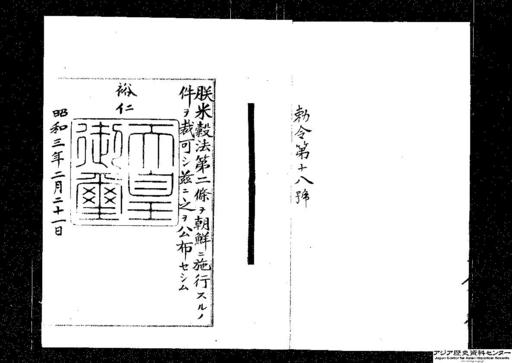 朕米穀法第二條ヲ朝鮮ニ施行スルノ
件ヲ裁可シ茲ニ之ヲ公布セシム
裕仁
天皇
御璽
昭和三年二月二十一日
勅令第十八號
アジア歴史資料センター
Japan Center for Asian Historical Records